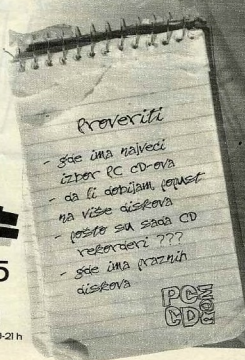 Proveriti
- gde ima najveci
izbor PC CD-ova
- da li dobijam popust
na više diskova
- pošto su sada CD
rekorderi ???
- gde ima praznih
diskova
PC
CD ROM
5
-21 h